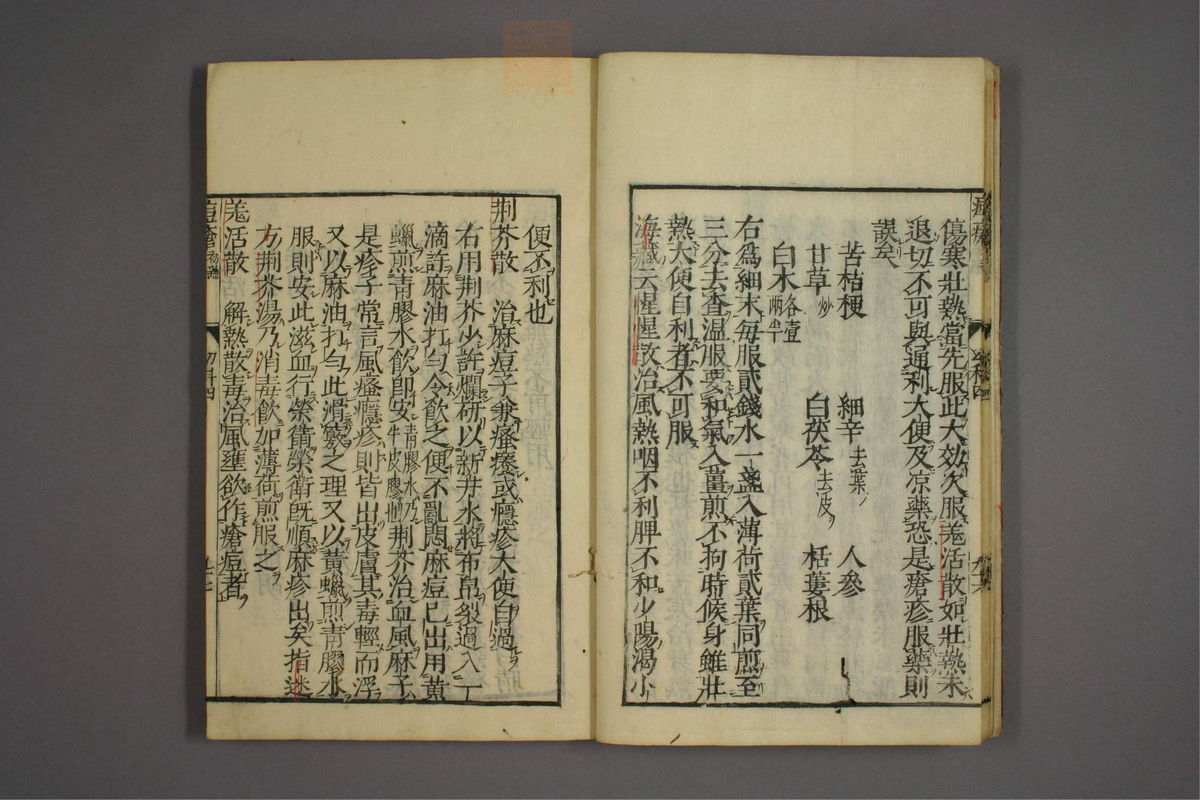 傷寒壯熱當先服此大効欠服羗活散如壯熱未
退切不可與通利大便及凉藥恐是瘡疹服藥則
誤矣
苦桔梗　細辛去葉　人參
甘草炒　白茯苓去皮　栝蔞根
白木各壹兩半
右爲細末每服貳錢水一盞入薄荷貳葉同煎至
三分去查温服要和氣入薑煎不狗時候身雖壯
熱大便自利者不可服
海藏云惺惺散治風熱咽不利脾不和少陽渴小
便不利也
荆芥散　治麻痘子兼瘙癢或癮疹大便自過
右用荆芥少許爛研以新井水將布帛裂過入一
滴許麻油打勻令飲之便不亂悶麻痘已出用黃
蠟煎青膠水飲卽安青膠水乃牛皮膠也荆芥治血風麻子
是疹子常言風瘙癮疹則皆出皮膚其毒輕而浮
又以麻油打勻此滑竅之理又以黃蠟煎青膠水
服則安此滋血行榮衛榮衛旣順麻疹出矣指迷
方荆芥湯乃消毒飲加薄荷煎服之
羗活散　解熱散毒治風壅欲作瘡痘者